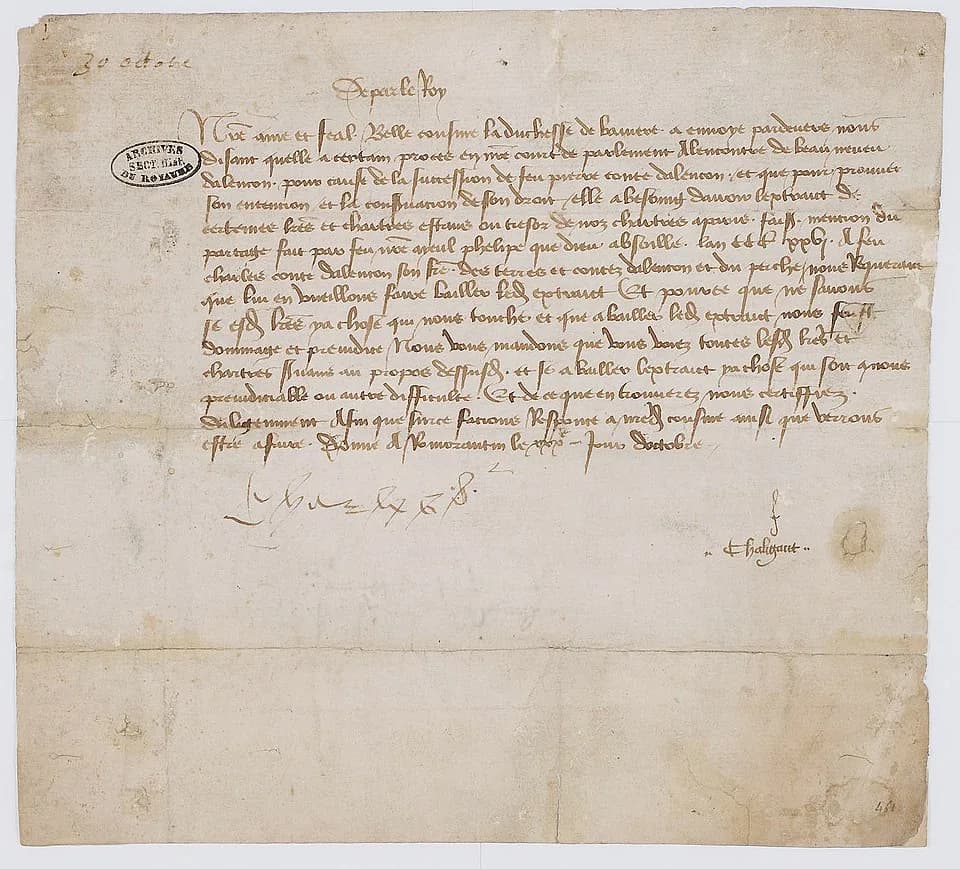 30 octobre
De par le Roy
ARCHIVES
SECT. Hist.
DU ROYAUME
Nre ame et feal. Belle cousine la duchesse de baviere a envoye pardevers nous
disant quelle a certain proces en nre court de parlement Alencontre de beau neveu
dalencon, pour cause de la succession de feu pierre conte dalencon, et que pour prouver
son entencion et la de son droit, elle a besoing davoir lextrait de
certaines lres et chartres estans ou tresor de noz chartres a paris, mention du
partage fait par feu nre ayeul phelipe que dieu absoille, lan xxvj. A feu
charles conte dalencon son fre, des terres et contez dalencon et du perche, nous Requerant
que lui en vueillons faire bailler led extrait Et pource que ne savons
se esd lres ya chose qui nous touche, et que a bailler led extrait nous
dommage et preiudice Nous vous mandons que vous veez toutes lesd lres et
chartres au propos dessusd, et se a bailler lextrait ya chose qui soit a nous
preiudiciable ou autre difficulte, Et de ce que en trouverez nous certiffiez
diligemment Afin que sur ce facions Response a nred cousine ainsi que verrons
estre a faire. Donne A Romorantin le xxxe Jour doctobre
Charles
Chaligaut